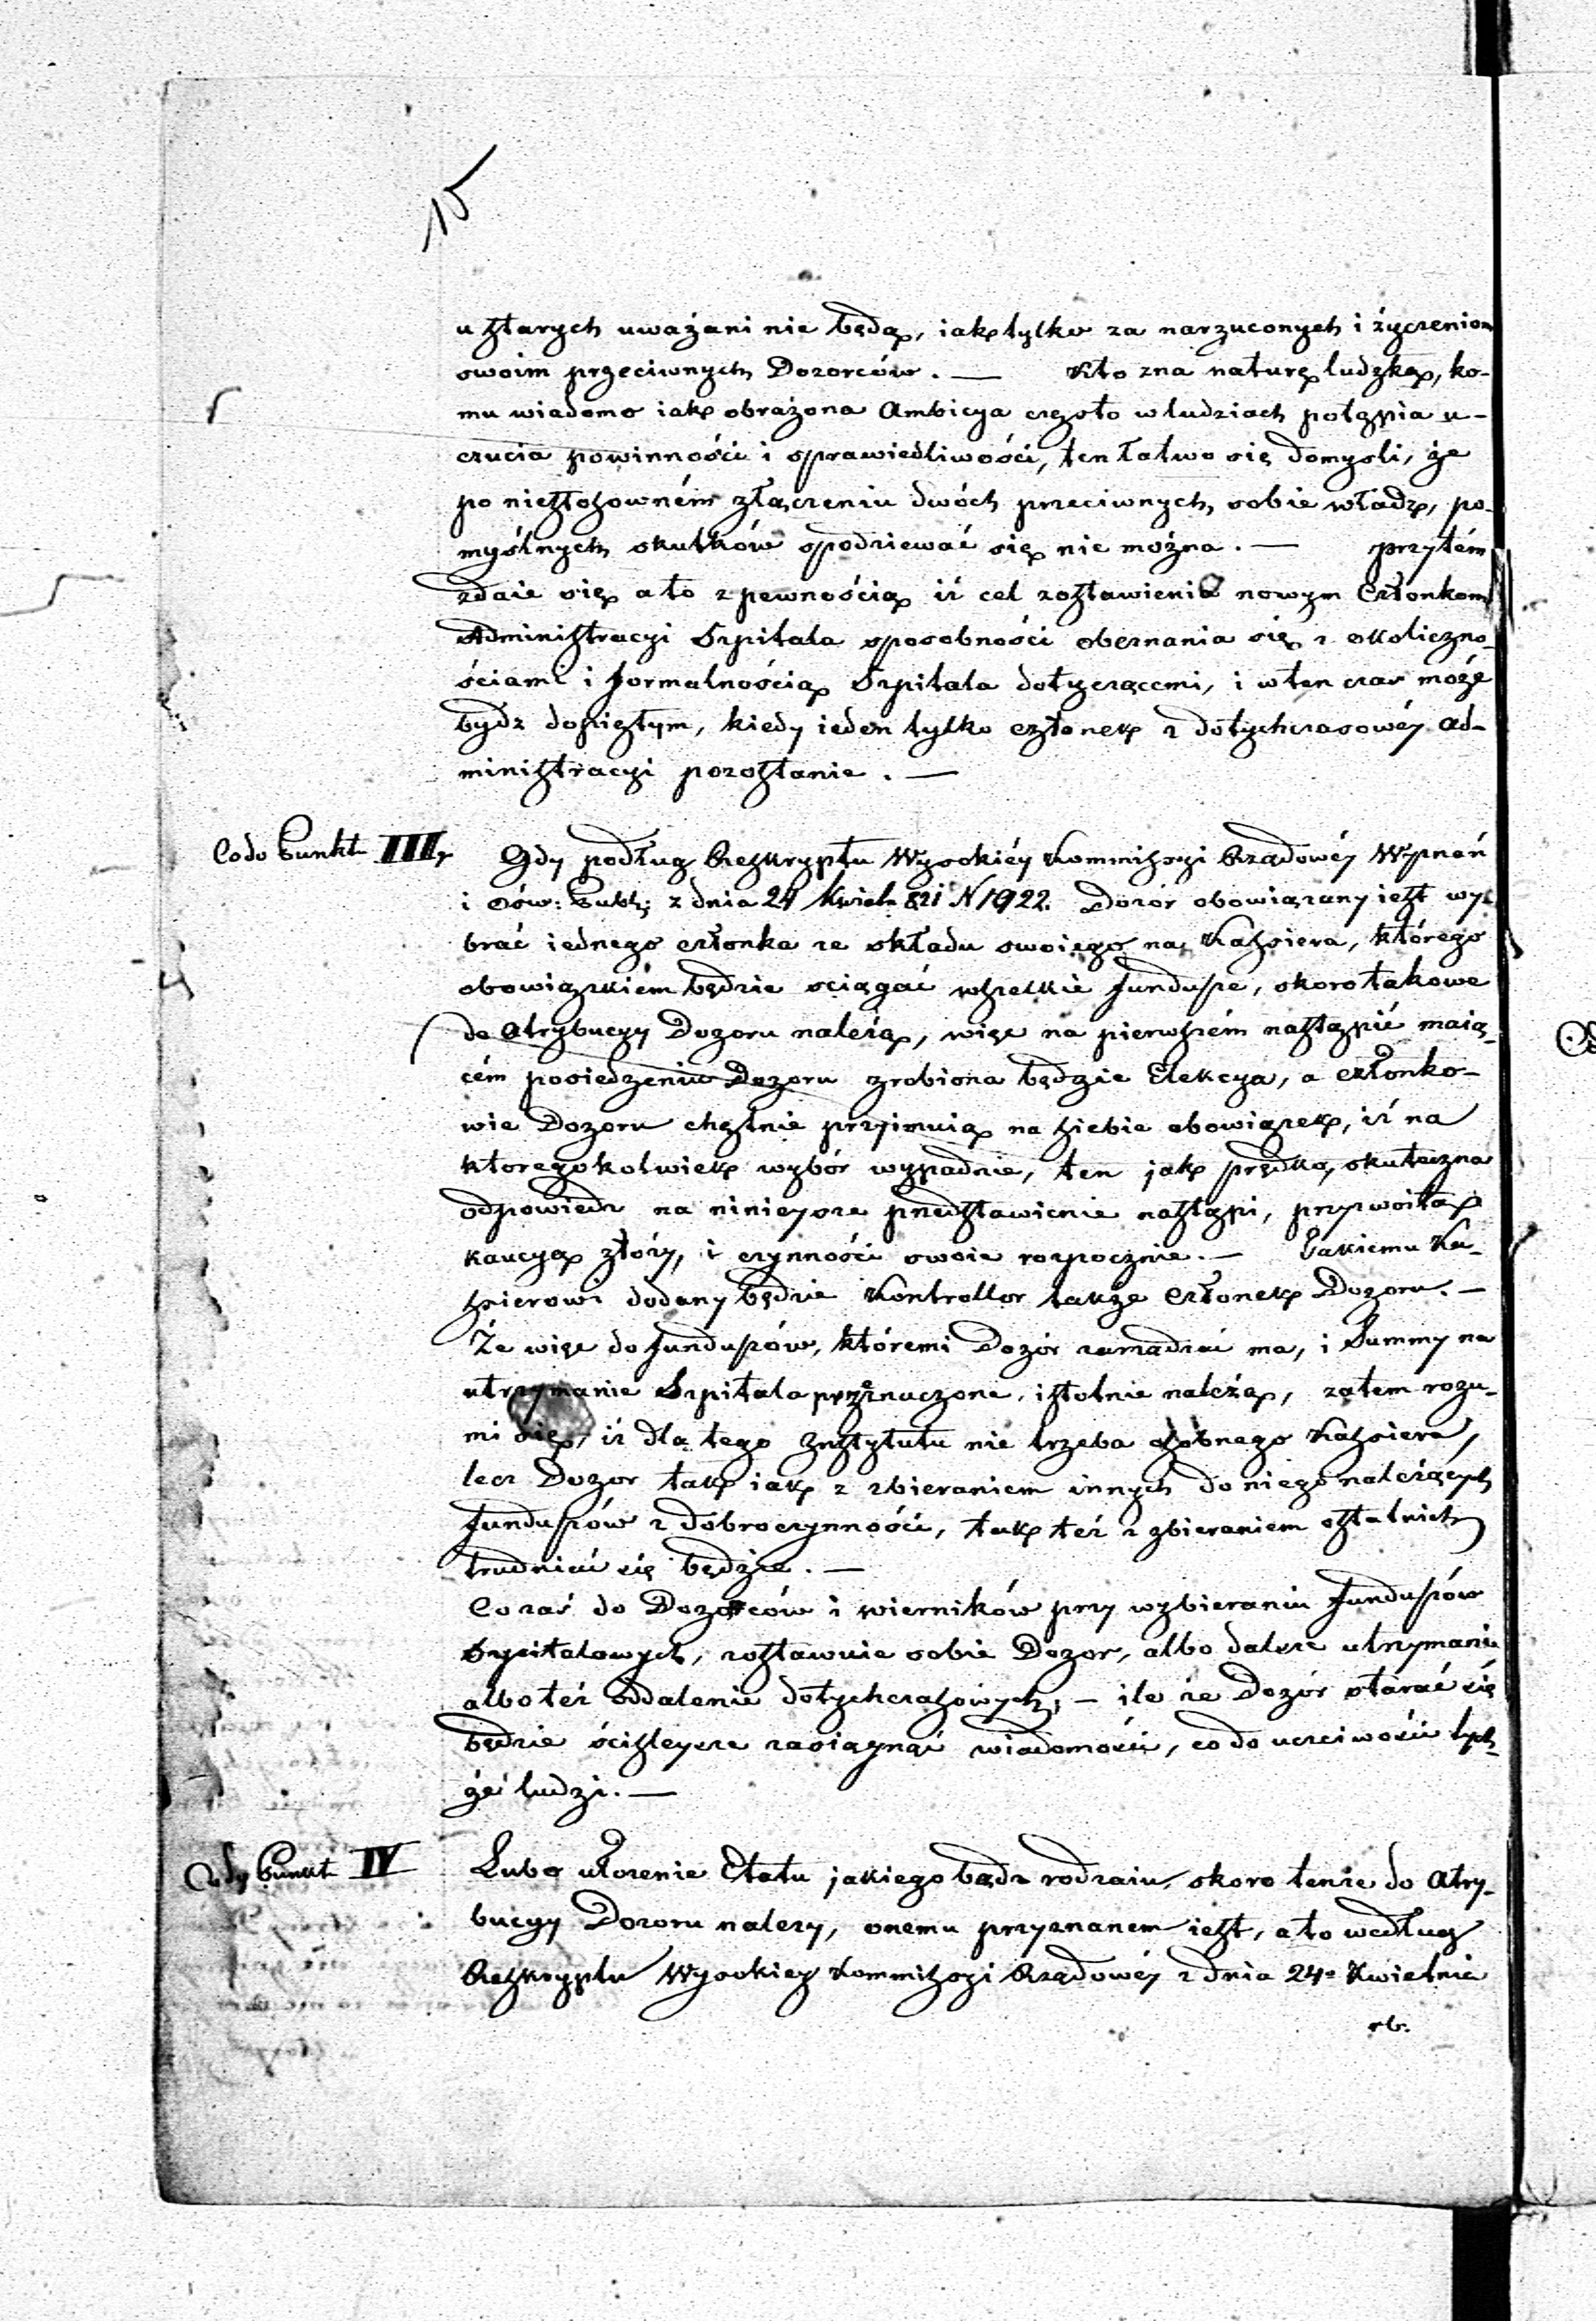 15
u starych uważani nie będą, iak tylko za narzuconych i życzeniom
swoim przeciwnych Dozorców. — Kto zna naturę ludzką, ko-
mu wiadomo iak obrażona Ambicya często w ludziach potępia u-
czucia powinności i sprawiedliwości, ten łatwo się domyśli, że
po niestosowném złączeniu dwóch przeciwnych sobie władz, po-
myślnych skutków spodziewać się nie można. — przytém
zdaie się a to z pewnością iż cel zostawienia nowym Członkom
Administracyi Szpitala sposobności obeznania się z okoliczno-
ściami i formalnością Szpitala dotyczącemi, i w ten czas może
bydź dopiętym, kiedy ieden tylko członek z dotychczasowéy Ad-
ministracyi pozostanie. —
Co do Punktu III,
Gdy podług Reskryptu Wysokiéy Kommissyi Rządowéy Wyznań
i Ośw: Publ: z dnia 24 Kwiet. 821 N 1922. Dozór obowiązany iest wy-
brać iednego członka ze składu swoiego na Kassiera, którego
obowiązkiem będzie ściągać wszelkie fundusze, skoro takowe
do Atrybucyy Dozoru należą, więc na pierwszém nastąpić maią-
cém posiedzeniu Dozoru zrobiona będzie Elekcya, a członko-
wie Dozoru chętnie przyimuią na siebie obowiązek, iż na
któregokolwiek wybór wypadnie, ten jak prędko, skuteczna
odpowiedź na ninieysze przedstawienie nastąpi, przyzwoitą
kaucyą złoży, i czynności swoie rozpocznie. — Takiemu Ka-
ssierowi dodany będzie Kontrollor także Członek Dozoru. —
Że więc do funduszów, któremi Dozór zarządzać ma, i Summy na
utrzymanie Szpitala przeznaczone, istotnie należą, zatem rozu-
mi się, iż dla tego Instytutu nie trzeba osobnego Kassiera,
lecz Dozor tak iak z zbieraniem innych do niego należących
funduszów z dobroczynności, tak też z zbieraniem ostatnich
trudnić się będzie. —
Co zaś do Dozorców i wierników przy wybieraniu funduszów
Szpitalowych, zostawuie sobie Dozor, albo dalsze utrzymanie
albo też oddalenie dotychczasowych; — ile że Dozór starać się
będzie ściśleysze zasięgnąć wiadomości, co do uczciwości tych-
że ludzi. —
Co do Punkt IV
Lubo ułożenie Etatu jakiego bądź rodzaiu, skoro tenże do Atry-
bucyy Dozoru należy, onemu przyznanem iest, a to według
Reskryptu Wysokiey Kommissyi Rządowéy z dnia 24º Kwietnia
rb.